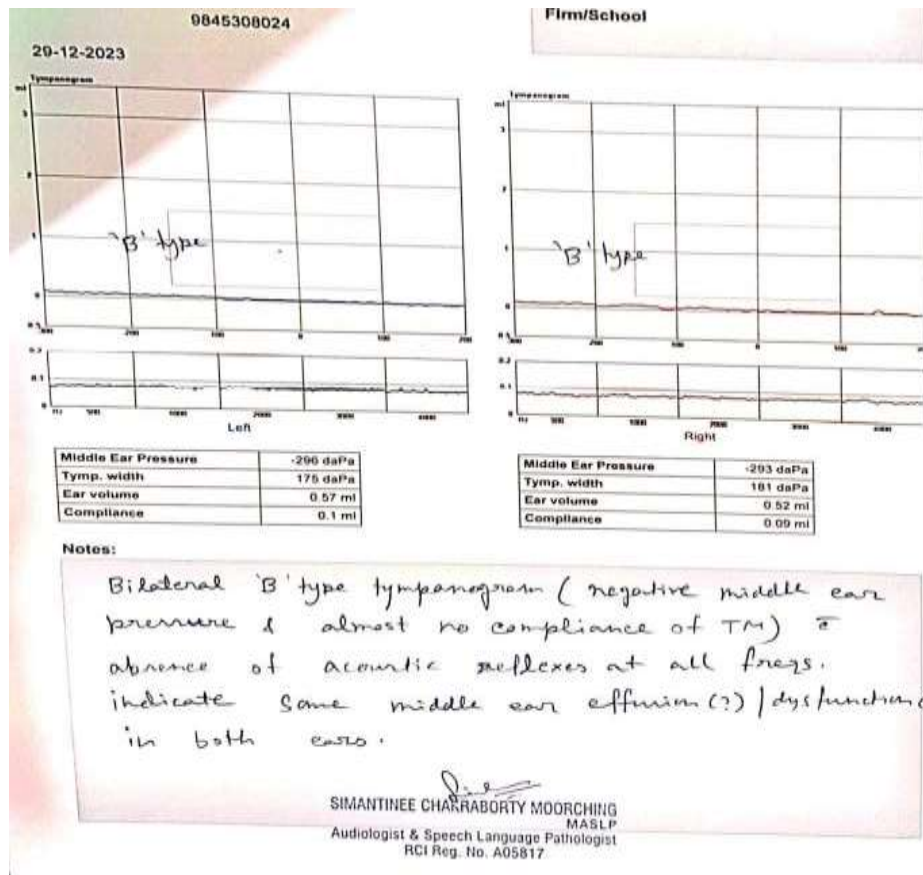 9845308024
Firm/School
29-12-2023
Tympanogram
ml
3
2
1
0
0.5
-300 -200 100 0 100 200
'B' type
0.2
0.1
0
Hz 500 1000 2000 3000 4000
Left
Middle Ear Pressure -296 daPa
Tymp. width 175 daPa
Ear volume 0.57 ml
Compliance 0.1 ml
Tympanogram
ml
3
2
1
0
0.5
300 200 100 0 100
'B' type
0.2
0.1
0
Hz 500 1000 2000 3000 4000
Right
Middle Ear Pressure -293 daPa
Tymp. width 181 daPa
Ear volume 0.52 ml
Compliance 0.09 ml
Notes:
Bilateral 'B' type tympanogram ( negative middle ear
pressure & almost no compliance of TM) c̄
absence of acoustic reflexes at all freqs.
indicate some middle ear effusion (?) / dysfunction
in both ears.
SIMANTINEE CHAKRABORTY MOORCHING
MASLP
Audiologist & Speech Language Pathologist
RCI Reg. No. A05817